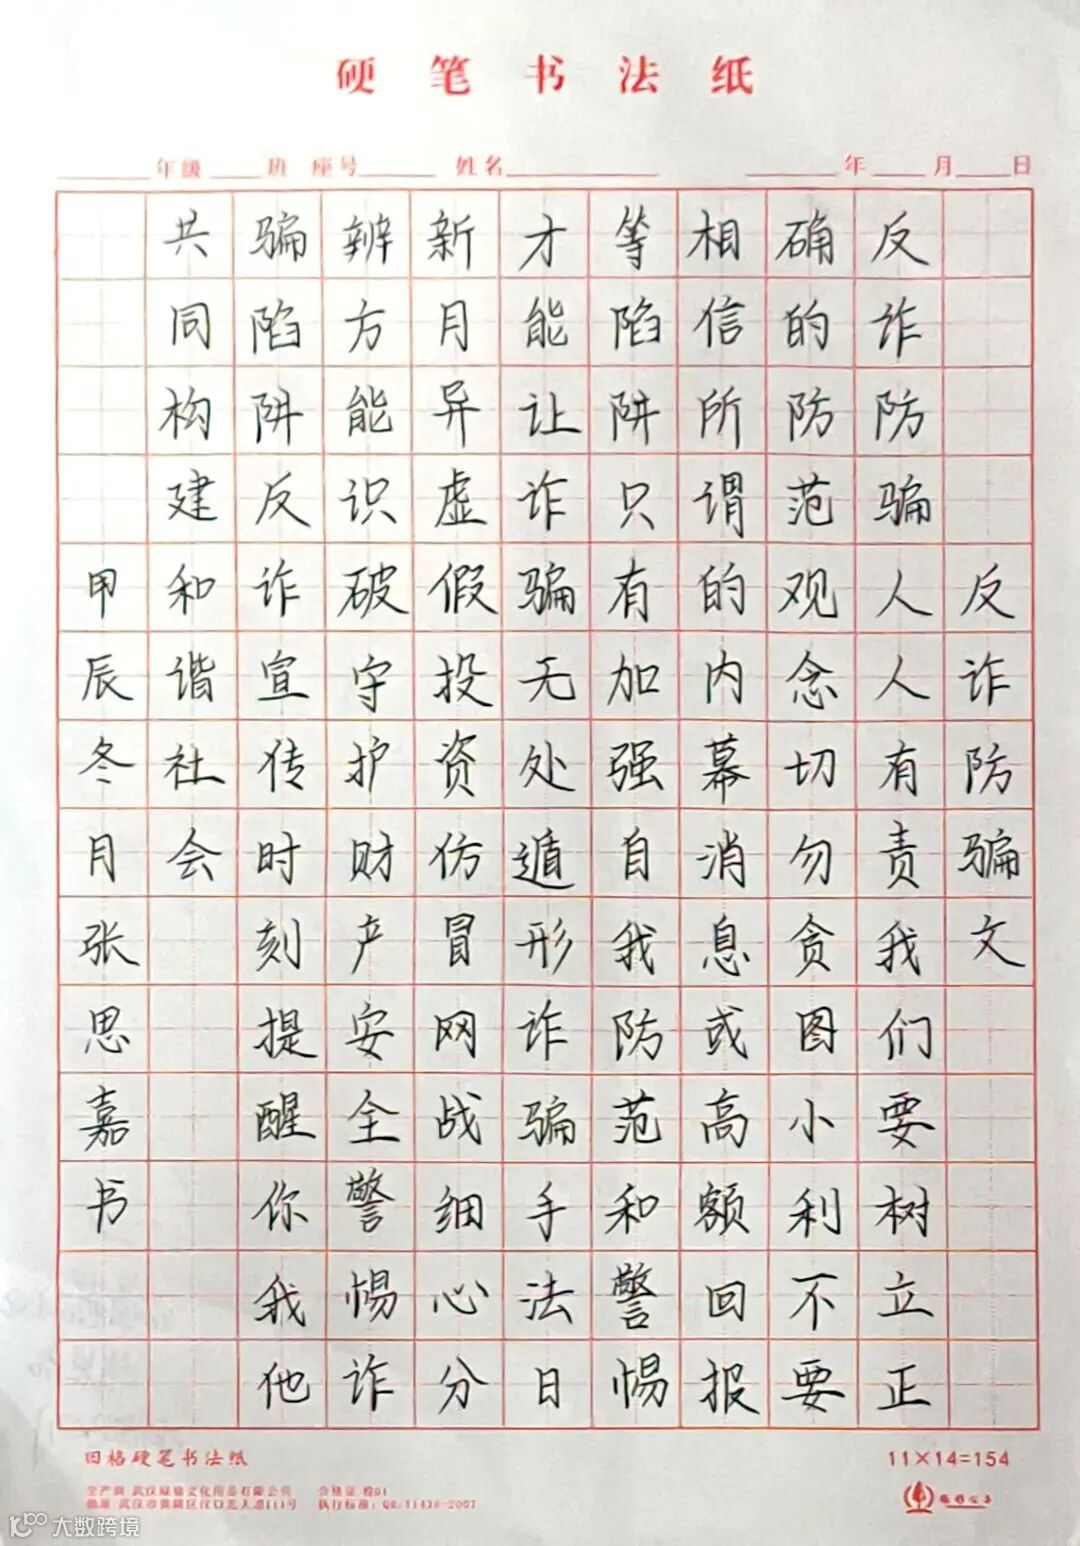 硬笔书法纸
年级 班 座号 姓名 年 月 日
反诈防骗文
反诈防骗人人有责我们要树立正
确的防范观念切勿贪图小利不要
相信所谓的内幕消息或高额回报
等陷阱只有加强自我防范和警惕
才能让诈骗无处遁形诈骗手法日
新月异虚假投资仿冒网战细心分
辨方能识破守护财产安全警惕诈
骗陷阱反诈宣传时刻提醒你我他
共同构建和谐社会
甲辰冬月张思嘉书
回格硬笔书法纸
11×14=154
文化用品有限公司 合格证:检01
地址:武汉市黄陂区汉口北大道111号 执行标准:
大数跨境